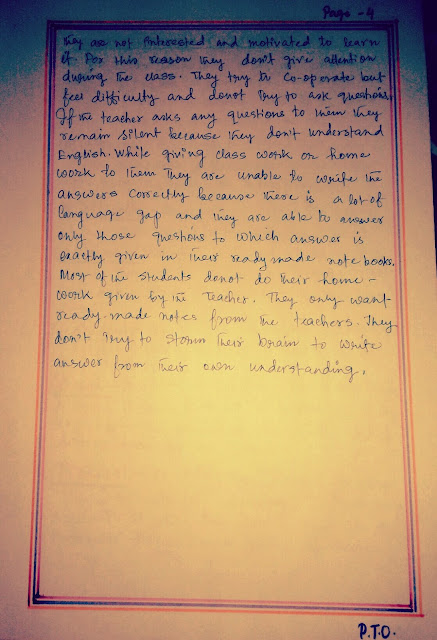 Page - 4
they are not interested and motivated to learn
it. For this reason they don't give attention
during the class. They try to co-operate but
feel difficulty and donot try to ask questions.
If the teacher asks any questions to them they
remain silent because they don't understand
English. While giving class work or home
work to them they are unable to write the
answers correctly because there is a lot of
language gap and they are able to answer
only those questions to which answer is
exactly given in their ready made note books.
Most of the students donot do their home-
work given by the teacher. They only want
ready-made notes from the teachers. They
don't try to storm their brain to write
answer from their own understanding.
P.T.O.